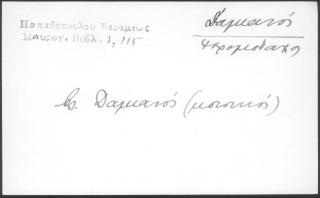 Παπαδοπούλου Κεραμέως
Μαυρογ. Βιβλ. 1, 115
Δαμιανός
Ἱερομόναχος
Βλ. Δαμιανός (μοναχός)